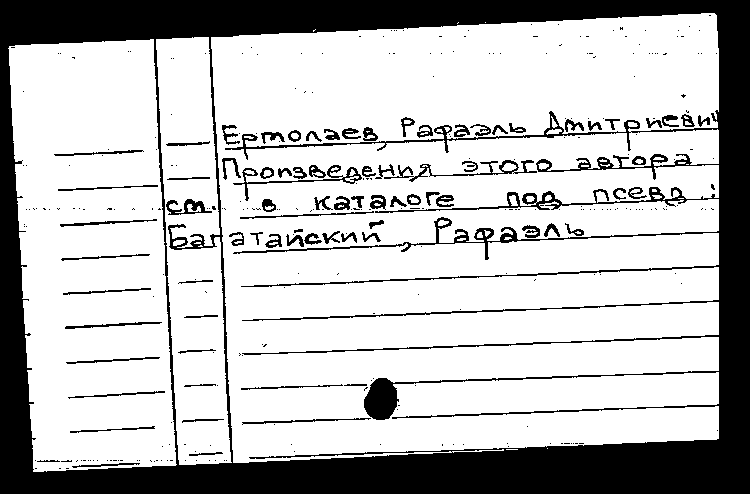 Ермолаев, Рафаэль Дмитриевич
Произведения этого автора
см. в каталоге под псевд:
Багатайский, Рафаэль